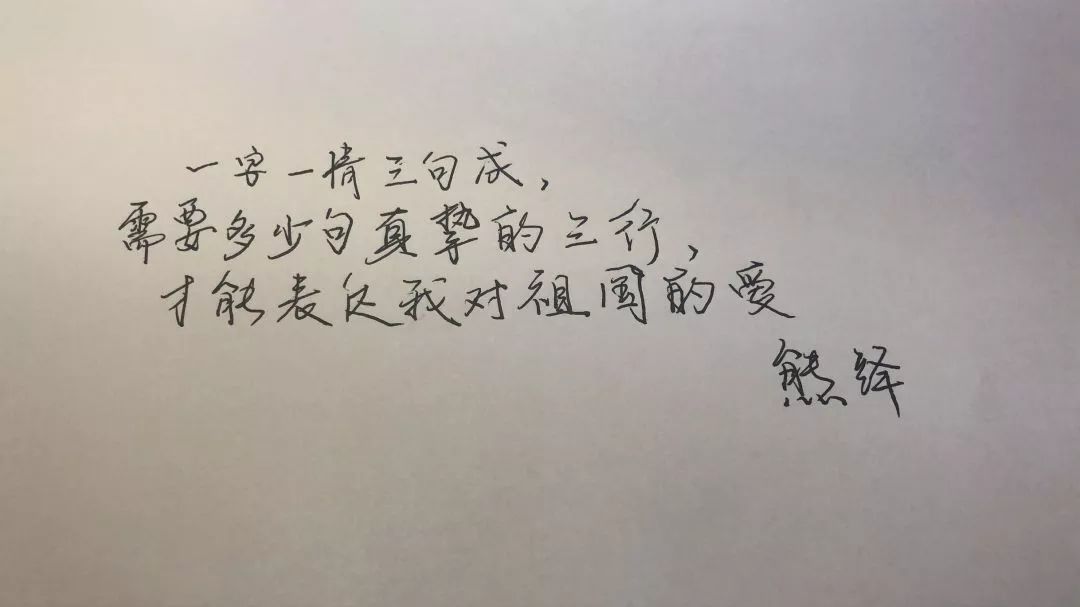 一字一情三句成，
需要多少句真挚的三行，
才能表达我对祖国的爱
熊绎